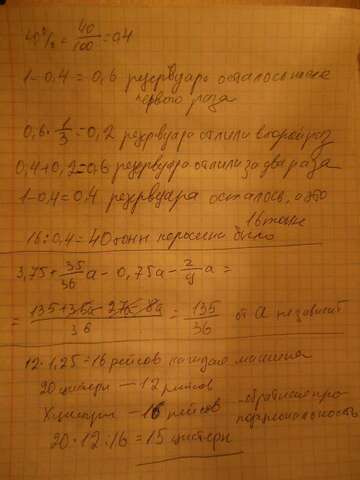 40% = 40/100 = 0,4
1-0,4=0,6 резервуара осталось после
первого раза
0,6·1/3=0,2 резервуара отлили второй раз
0,4+0,2=0,6 резервуара отлили за два раза
1-0,4=0,4 резервуара осталось, а это
16 тонн
16:0,4=40 тонн керосина было
3,75+35/36a-0,75a-2/9a=
= 135+35a-27a-8a/36 = 135/36 от а не зависит
12·1,25=16 рейсов каждая машина
20 цистерн — 12 рейсов
X цистерн — 16 рейсов - обратная про-
порциональность
20·12:16=15 цистерн